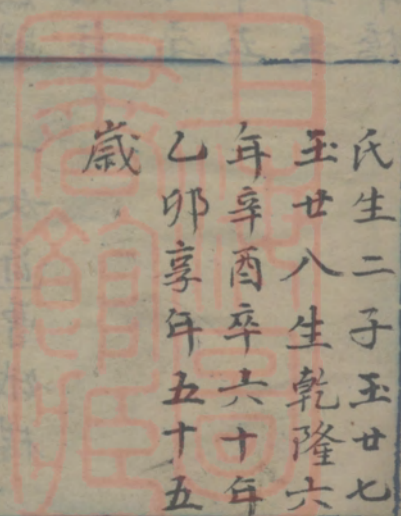 氏生二子玉廿七
玉廿八生乾隆六
年辛酉卒六十年
乙卯享年五十五
歳